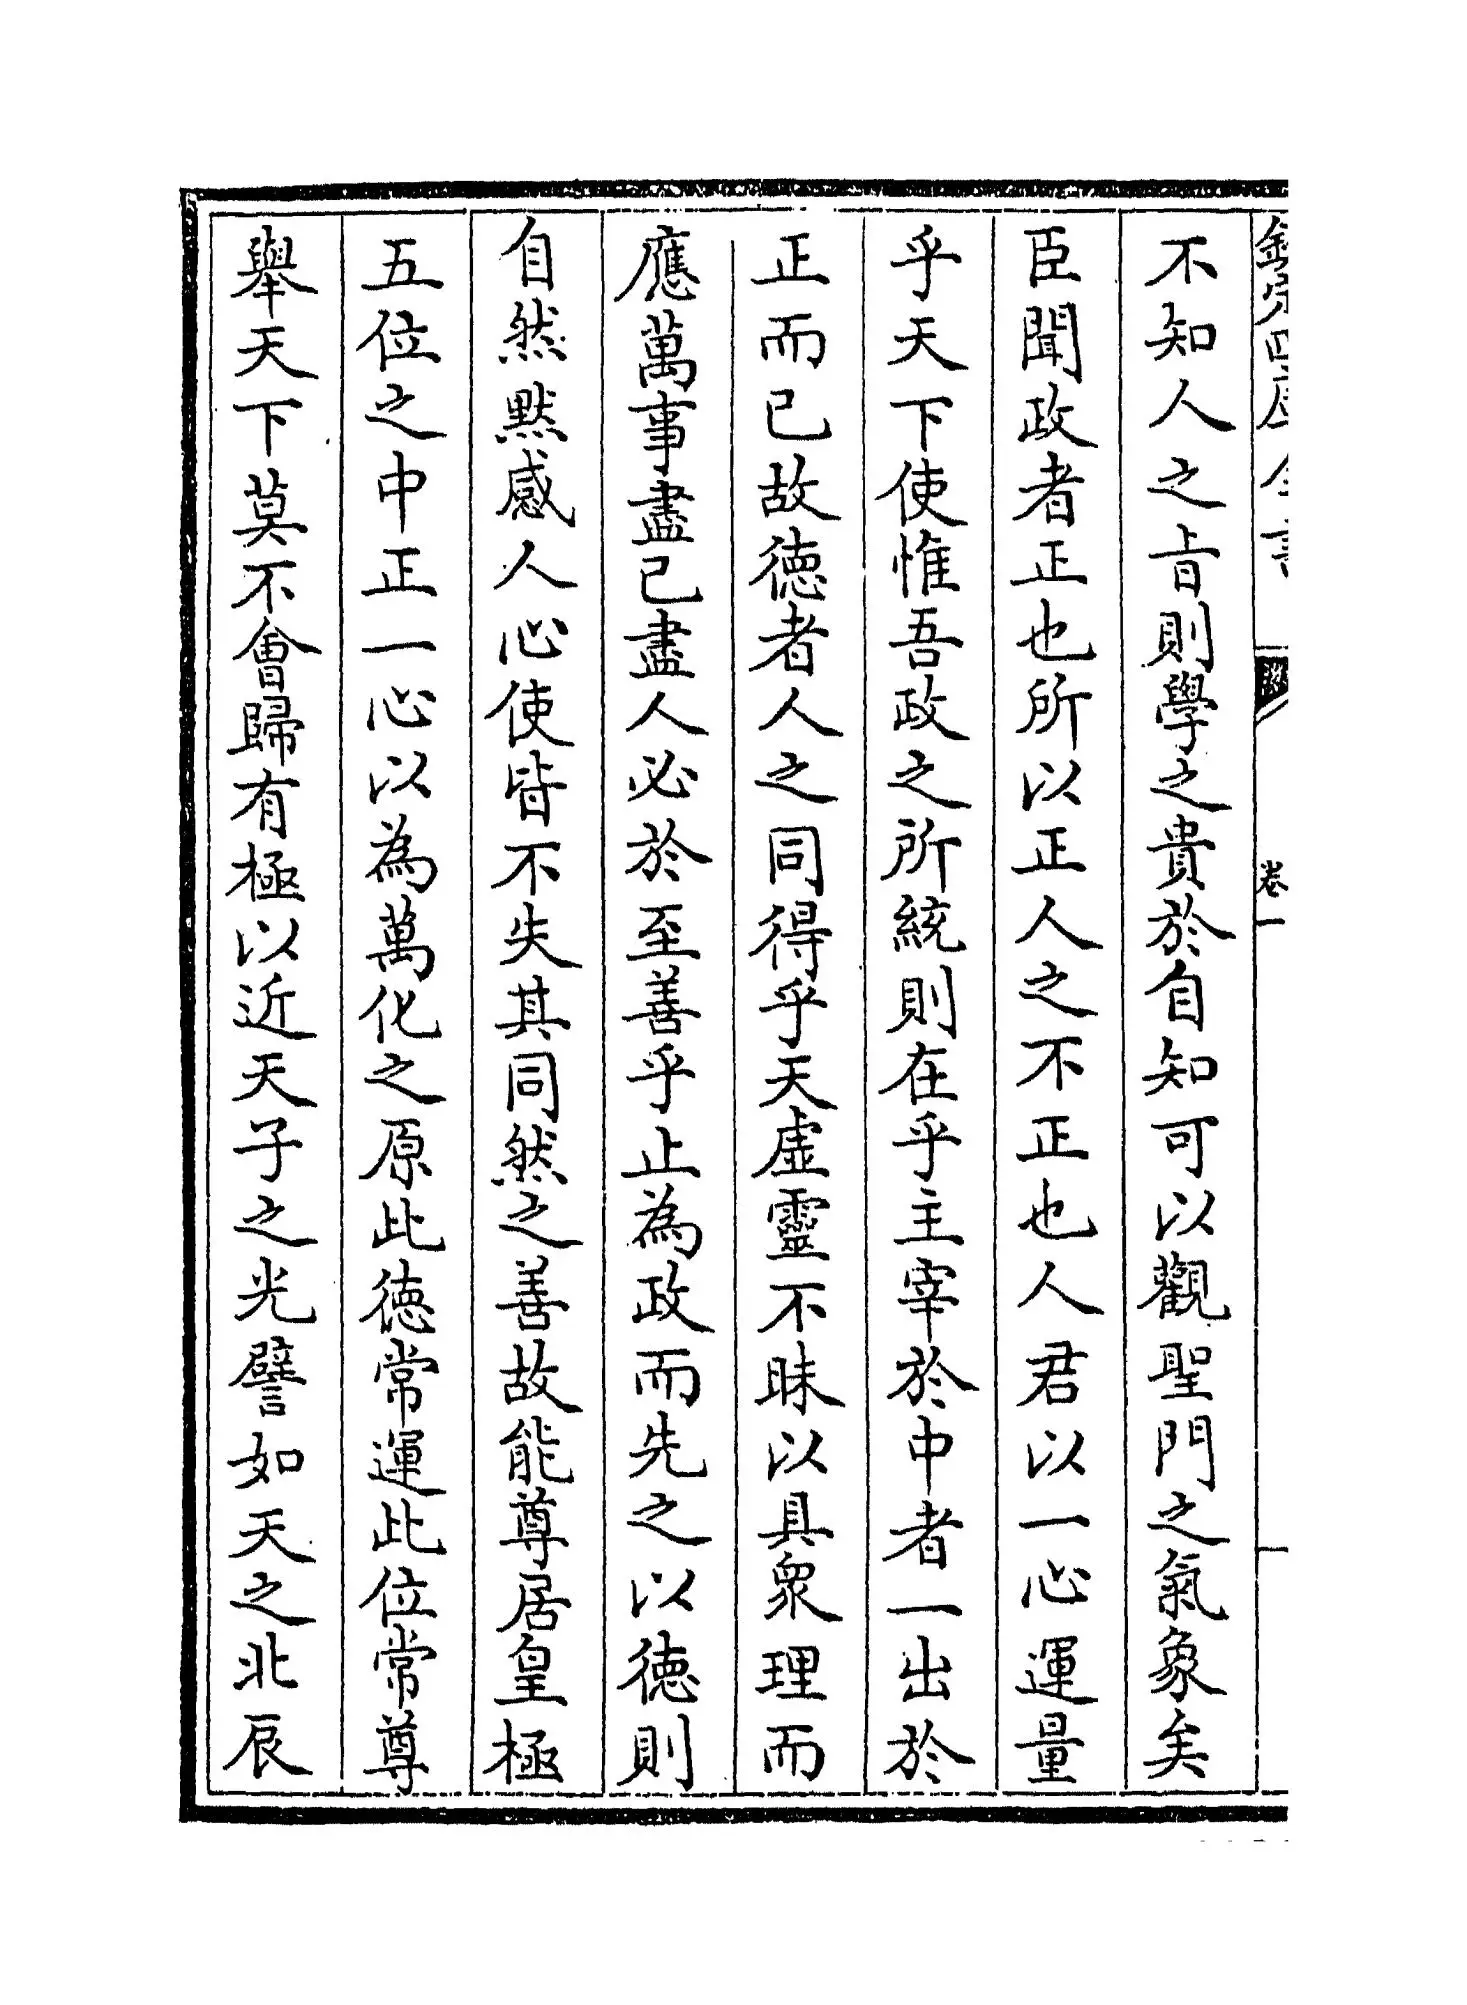 欽定四庫全書
卷一
不知人之㫖則學之貴於自知可以觀聖門之氣象矣
臣聞政者正也所以正人之不正也人君以一心運量
乎天下使惟吾政之所統則在乎主宰於中者一出於
正而已故徳者人之同得乎天虚靈不昧以具衆理而
應萬事盡己盡人必於至善乎止為政而先之以徳則
自然黙感人心使皆不失其同然之善故能尊居皇極
五位之中正一心以為萬化之原此徳常運此位常尊
舉天下莫不會歸有極以近天子之光譬如天之北辰